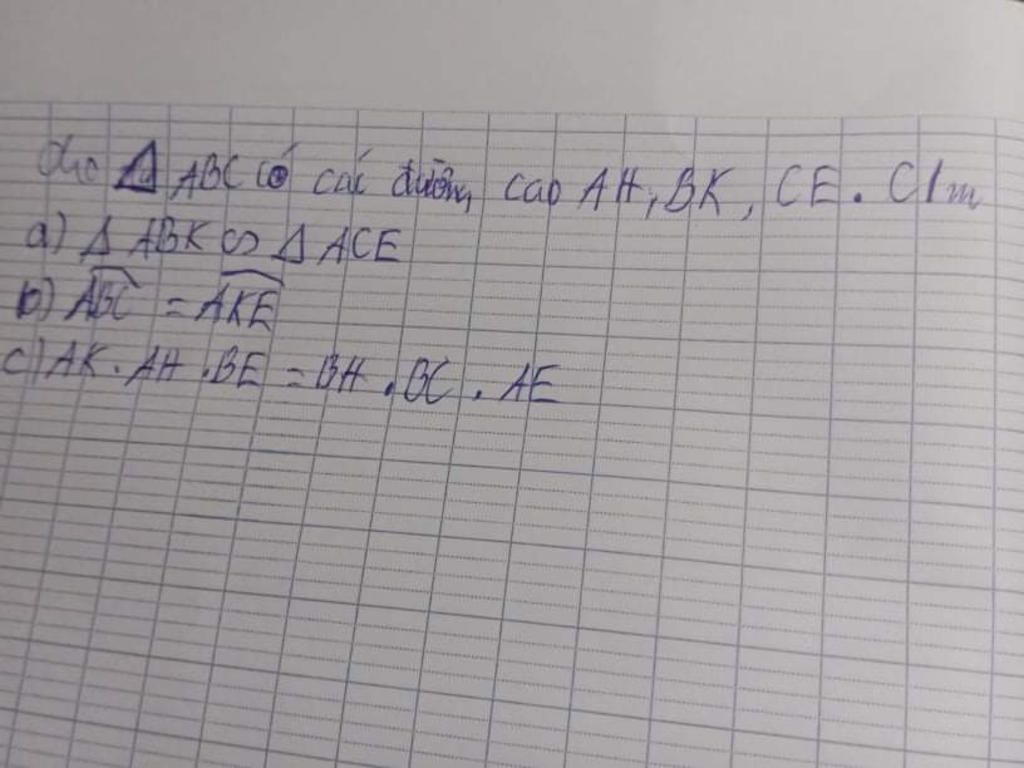 cho Δ ABC có các đường cao AH, BK, CE. C/m
a) Δ ABK ∽ Δ ACE
b) \widehat{ABC} = \widehat{AKE}
c) AK . AH . BE = BH . BC . AE